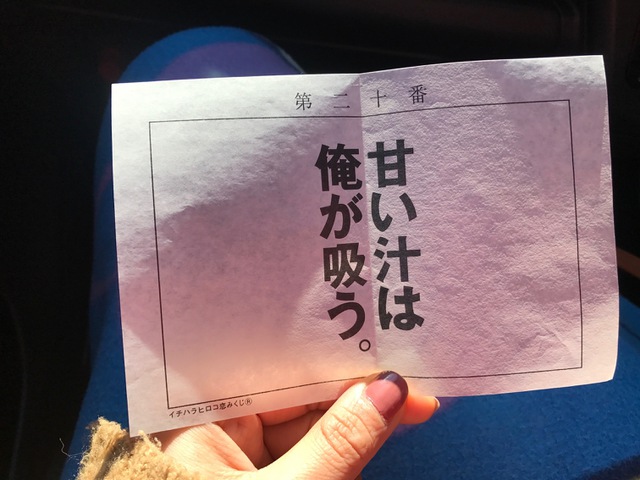 第二十番
甘い汁は
俺が吸う。
イチハラヒロコ恋みくじ®